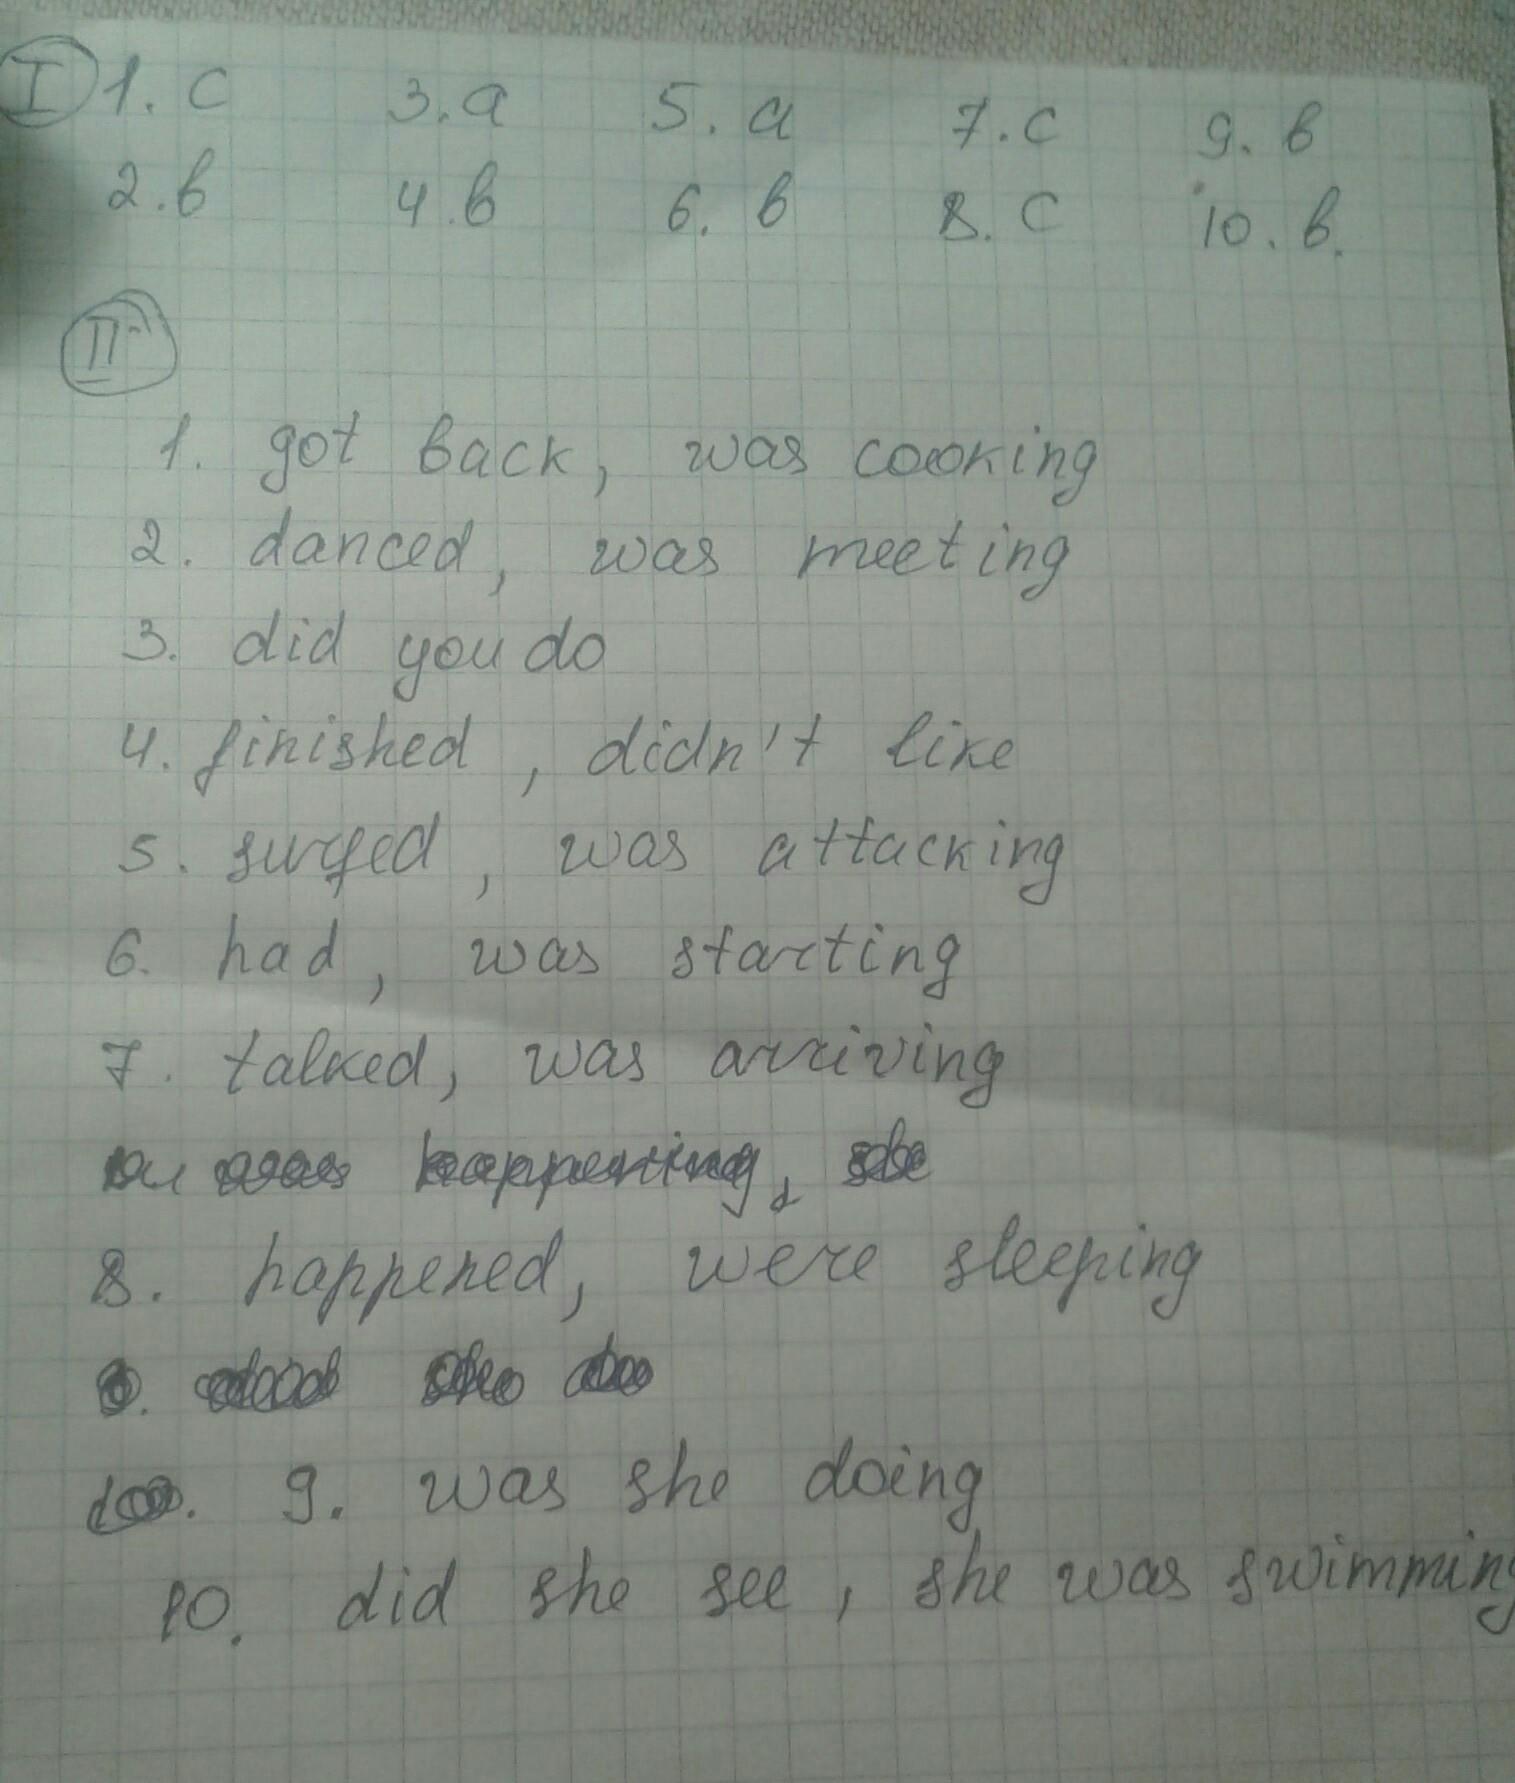 I 1. c 3. a 5. a 7. c 9. b
2. b 4. b 6. b 8. c 10. b.
II
1. got back, was cooking
2. danced, was meeting
3. did you do
4. finished, didn't like
5. surfed, was attacking
6. had, was starting
7. talked, was arriving
was happening,
8. happened, were sleeping
9. was she doing
10. did she see, she was swimming